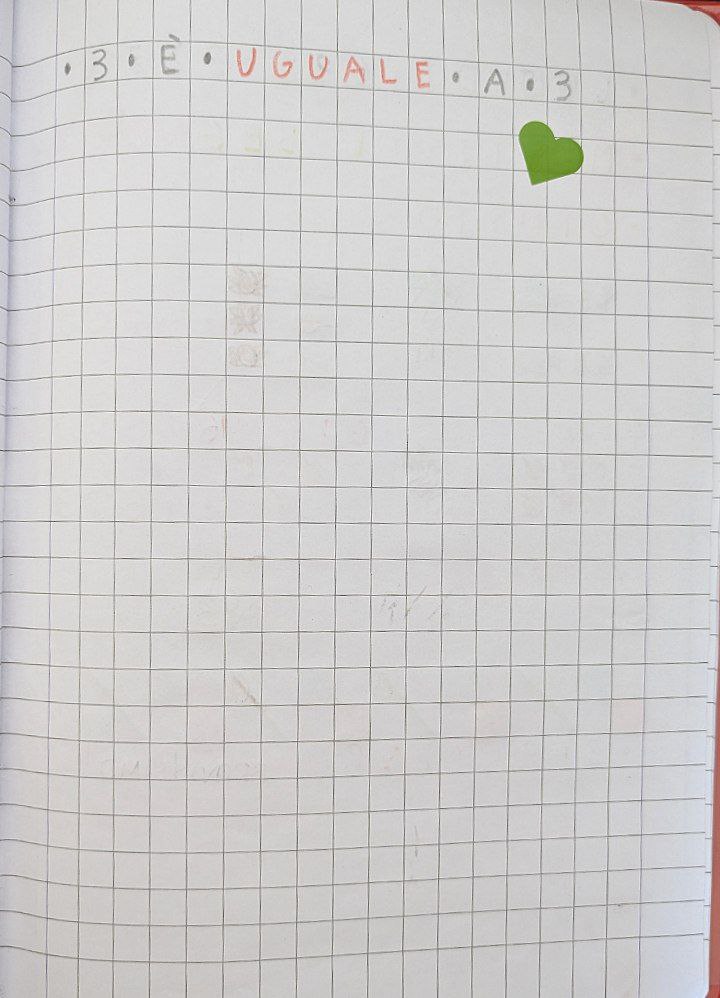 •3•È•UGUALE•A•3